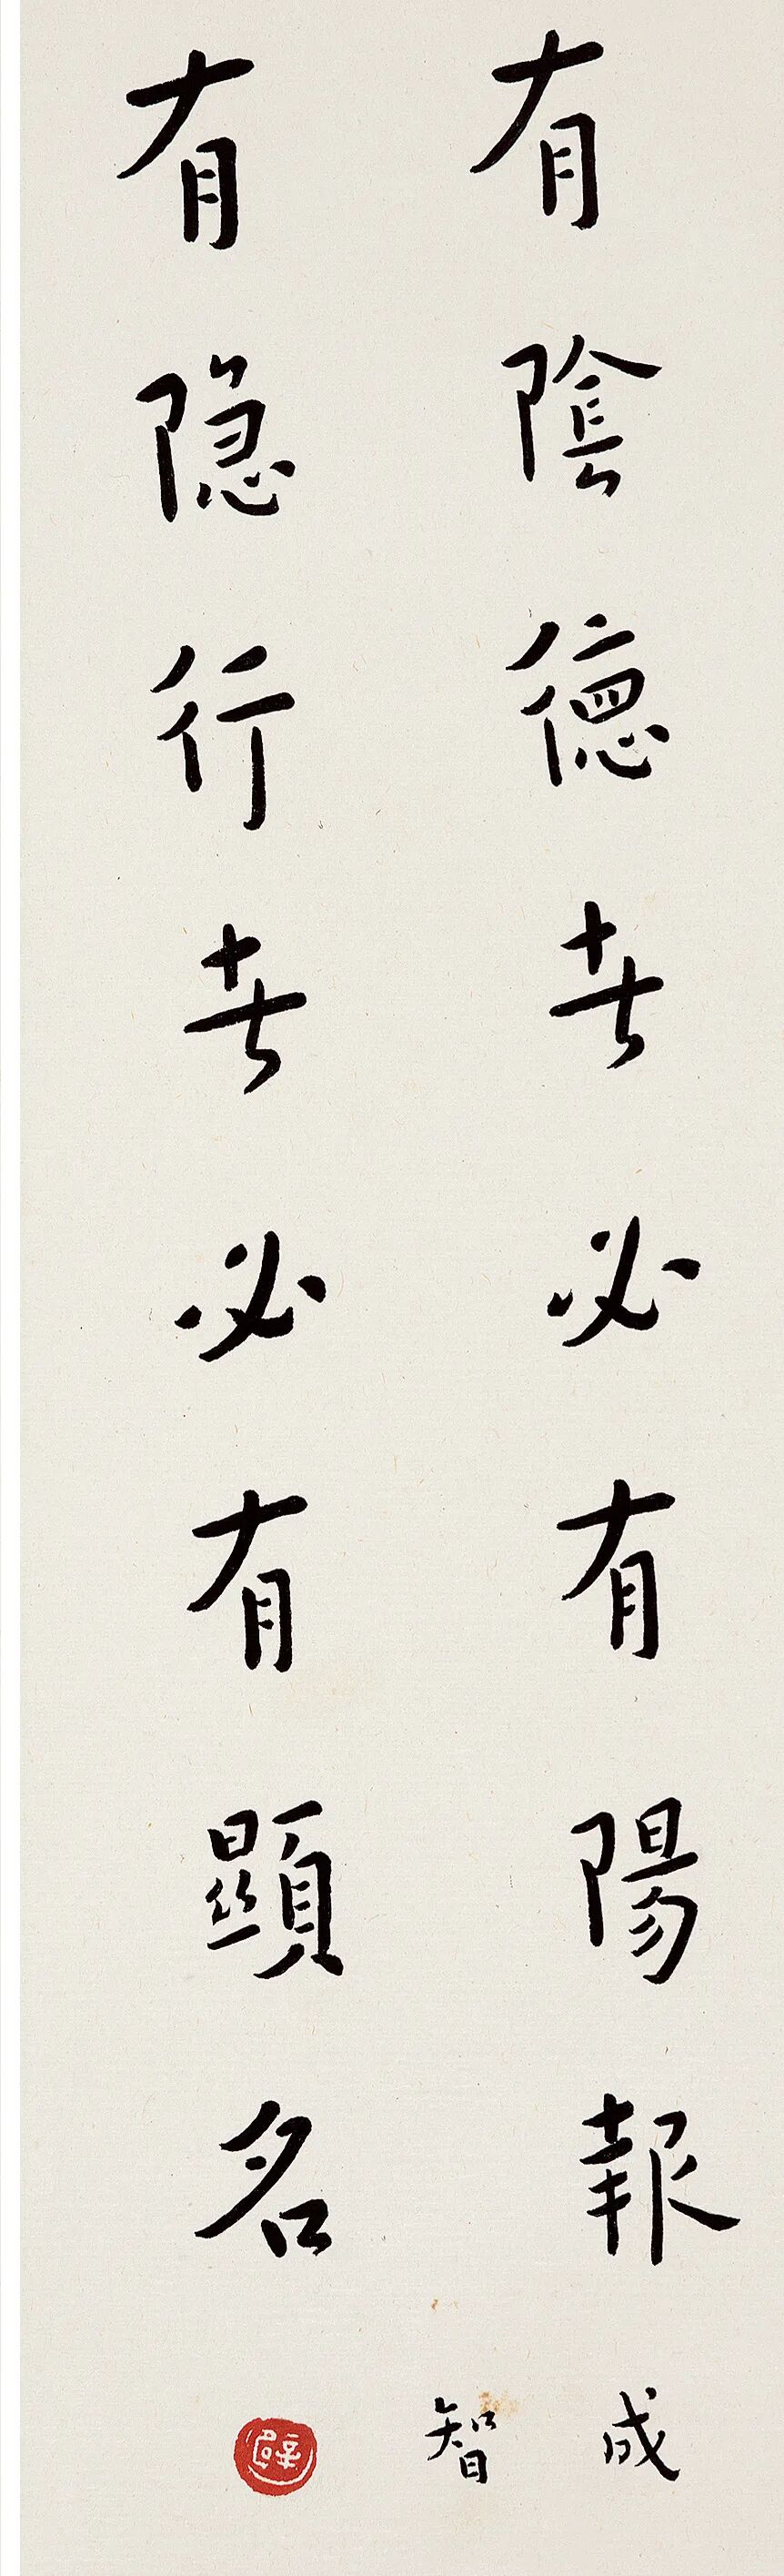 有陰德者必有陽報
有隐行者必有顯名
成智